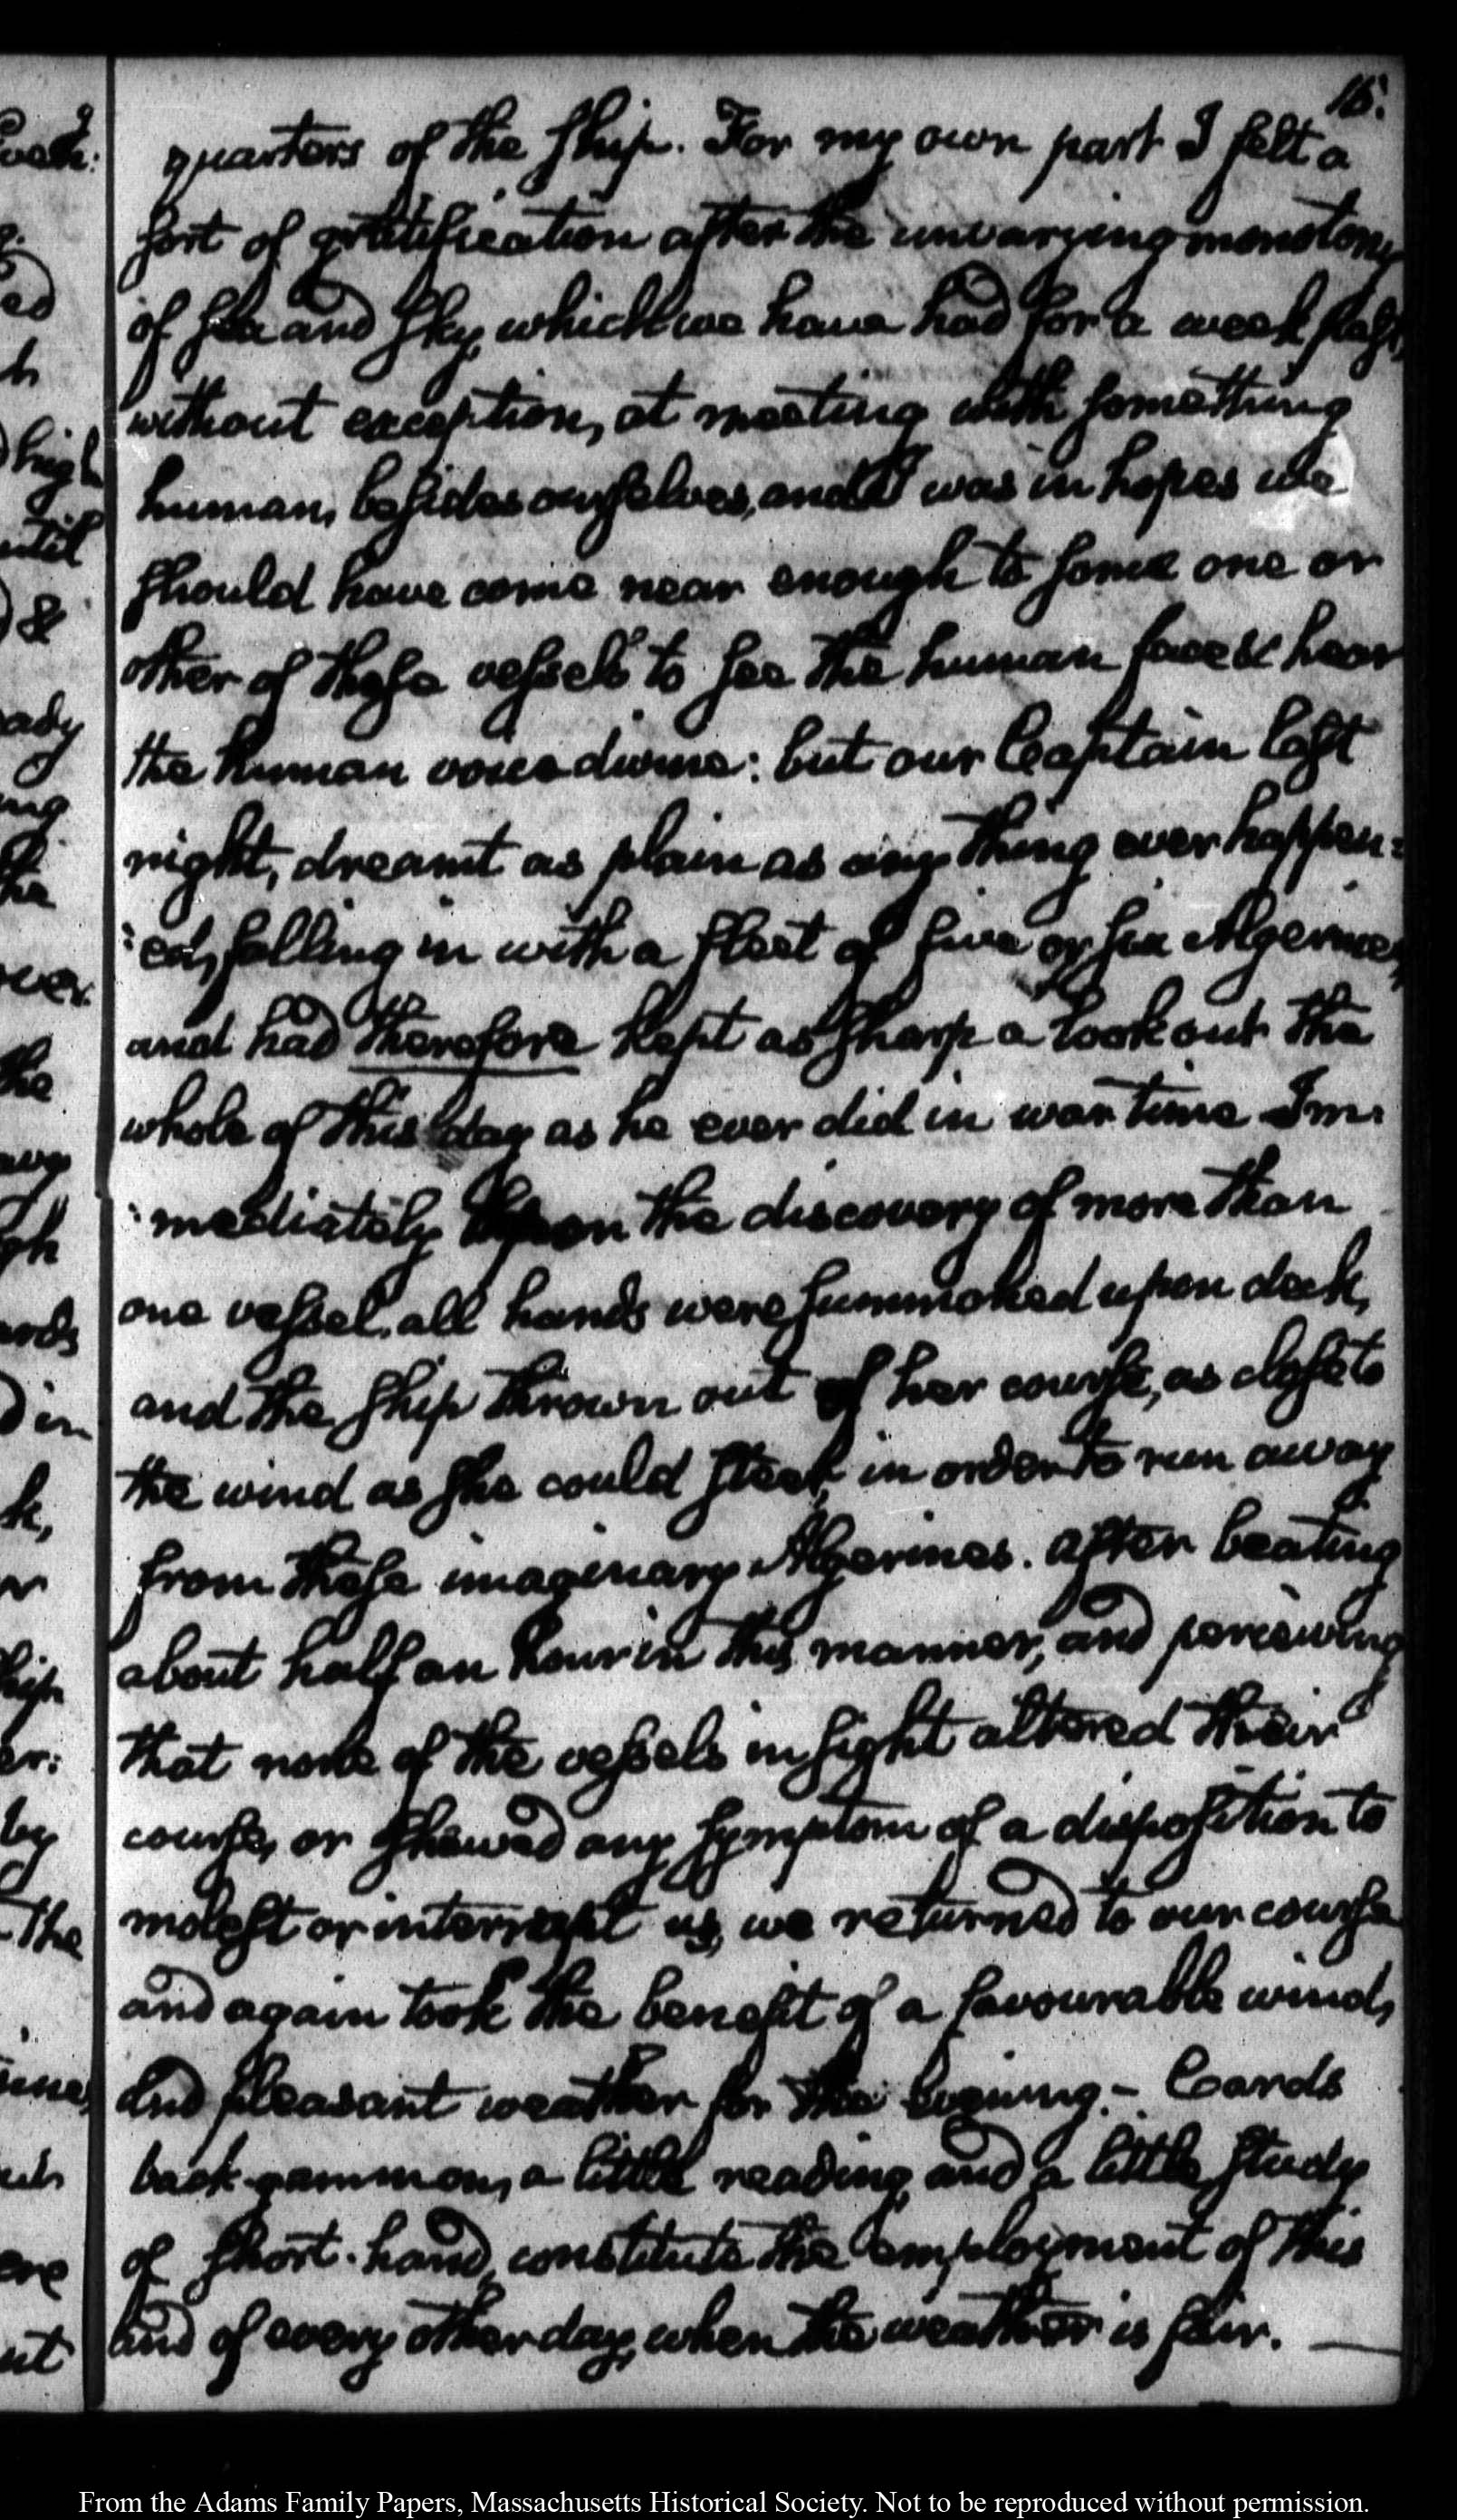 15.
quarters of the ship. For my own part I felt a
sort of gratification after the unvarying monotony
of sea and sky, which we have had for a week past,
without exception, at meeting with something
human, besides ourselves, and I was in hopes we
should have come near enough to some one or
other of these vessels to see the human face & hear
the human voice divine: but our Captain last
night, dreamt as plain as any thing ever happen=
=ed, falling in with a fleet of five or six Algerines,
and had therefore kept as sharp a look out the
whole of this day as he ever did in war time Im=
=mediately upon the discovery of more than
one vessel, all hands were summoned upon deck,
and the ship thrown out of her course, as close to
the wind as she could steer, in order to run away
from these imaginary Algerines. after beating
about half an hour in this manner, and perceiving
that none of the vessels in sight altered their
course, or shewed any symptom of a disposition to
molest or interrupt us, we returned to our course
and again took the benefit of a favourable wind,
and pleasant weather for the evening.- Cards
back-gammon, a little reading, and a little study
of short-hand, constitute the employment of this
and of every other day, when the weather is fair. —
ady
ng
the
ards
by
The
ere
From the Adams Family Papers, Massachusetts Historical Society. Not to be reproduced without permission.